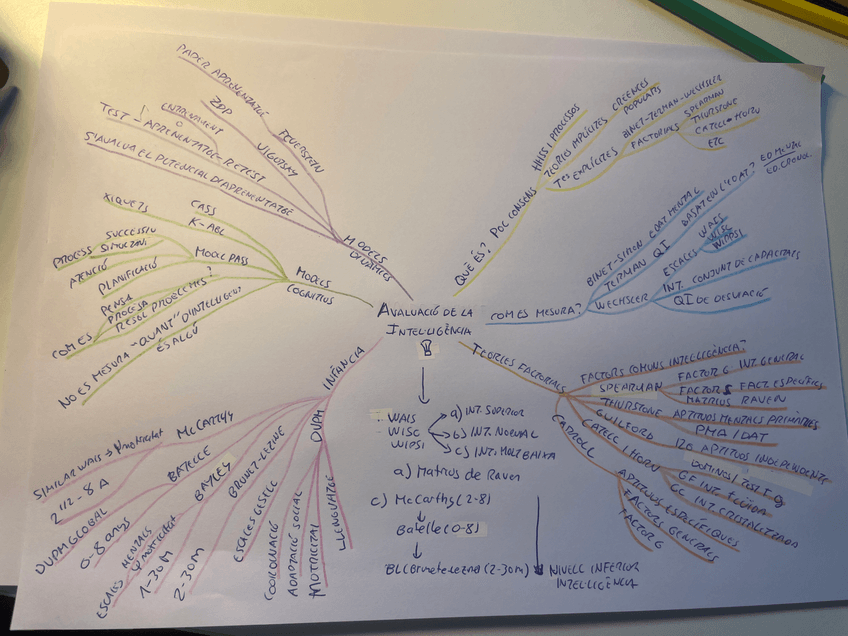 AVALUACIÓ DE LA
INTEL·LIGÈNCIA
QUÈ ÉS? POC CONSENS
HHSS I PROCESSOS
TEORIES IMPLÍCITES
CREENCES
POPULARS
TES EXPLÍCITES
BINET-TERMAN-WECHSLER
FACTORIALS
SPEARMAN
THURSTONE
CATELL-HORN
ETC
COM ES MESURA?
BINET-SIMON EDAT MENTAL
TERMAN QI
BASAT EN L'EDAT?
ED.MENTAL
ED.CRONOL.
WECHSLER
ESCALES
WAIS
WISC
WIPPSI
INT. CONJUNT DE CAPACITATS
QI DE DESVIACIÓ
TEORIES FACTORIALS
FACTORS COMUNS INTEL·LIGÈNCIA?
SPEARMAN
FACTOR G INT. GENERAL
FACTOR S FACT. ESPECÍFICS
MATRIUS RAVEN
THURSTONE
APTITUDS MENTALS PRIMÀRIES
PMA / DAT
GUILFORD
120 APTITUDS INDEPENDENTS
CATELL I HORN
DOMINOS / TEST D
GF INT. FLUIDA
GC INT. CRISTAL·LITZADA
CARROLL
APTITUDS ESPECÍFIQUES
FACTORS GENERALS
FACTOR G
MODELS
DINÀMICS
PAPER APRENENTATGE
FEUERSTEIN
ZDP
VIGOTSKY
TEST
ENTRENAMENT
O
APRENENTATGE-RETEST
S'AVALUA EL POTENCIAL D'APRENENTATGE
MODELS
COGNITIUS
XIQUETS
CASS
K-ABC
MODEL PASS
PROCESS
SUCCESSIU
SIMULTANI
ATENCIÓ
PLANIFICACIÓ
COM ES
PENSA
PROCESA
RESOL PROBLEMES?
NO ES MESURA "QUANT" D'INTEL·LIGENT
ÉS ALGÚ
INFÀNCIA
McCARTHY
SIMILAR WAIS → Ψmotricitat
2 1/2 - 8 A
BATELLE
DVPM GLOBAL
0-8 anys
BAYLEY
ESCALES
MENTALS
Ψmotricitat
1-30 M
BRUNET-LEZINE
2-30M
DVPM
ESCALES GESELL
COORDINACIÓ
ADAPTACIÓ SOCIAL
MOTRICITAT
LLENGUATGE
WAIS
WISC
WIPSI
a) INT. SUPERIOR
b) INT. NORMAL
c) INT. MOLT BAIXA
a) Matrius de Raven
c) McCarthy (2-8)
Batelle (0-8)
BL (Brunete Lezne) (2-30m)
NIVELL INFERIOR
INTEL·LIGÈNCIA